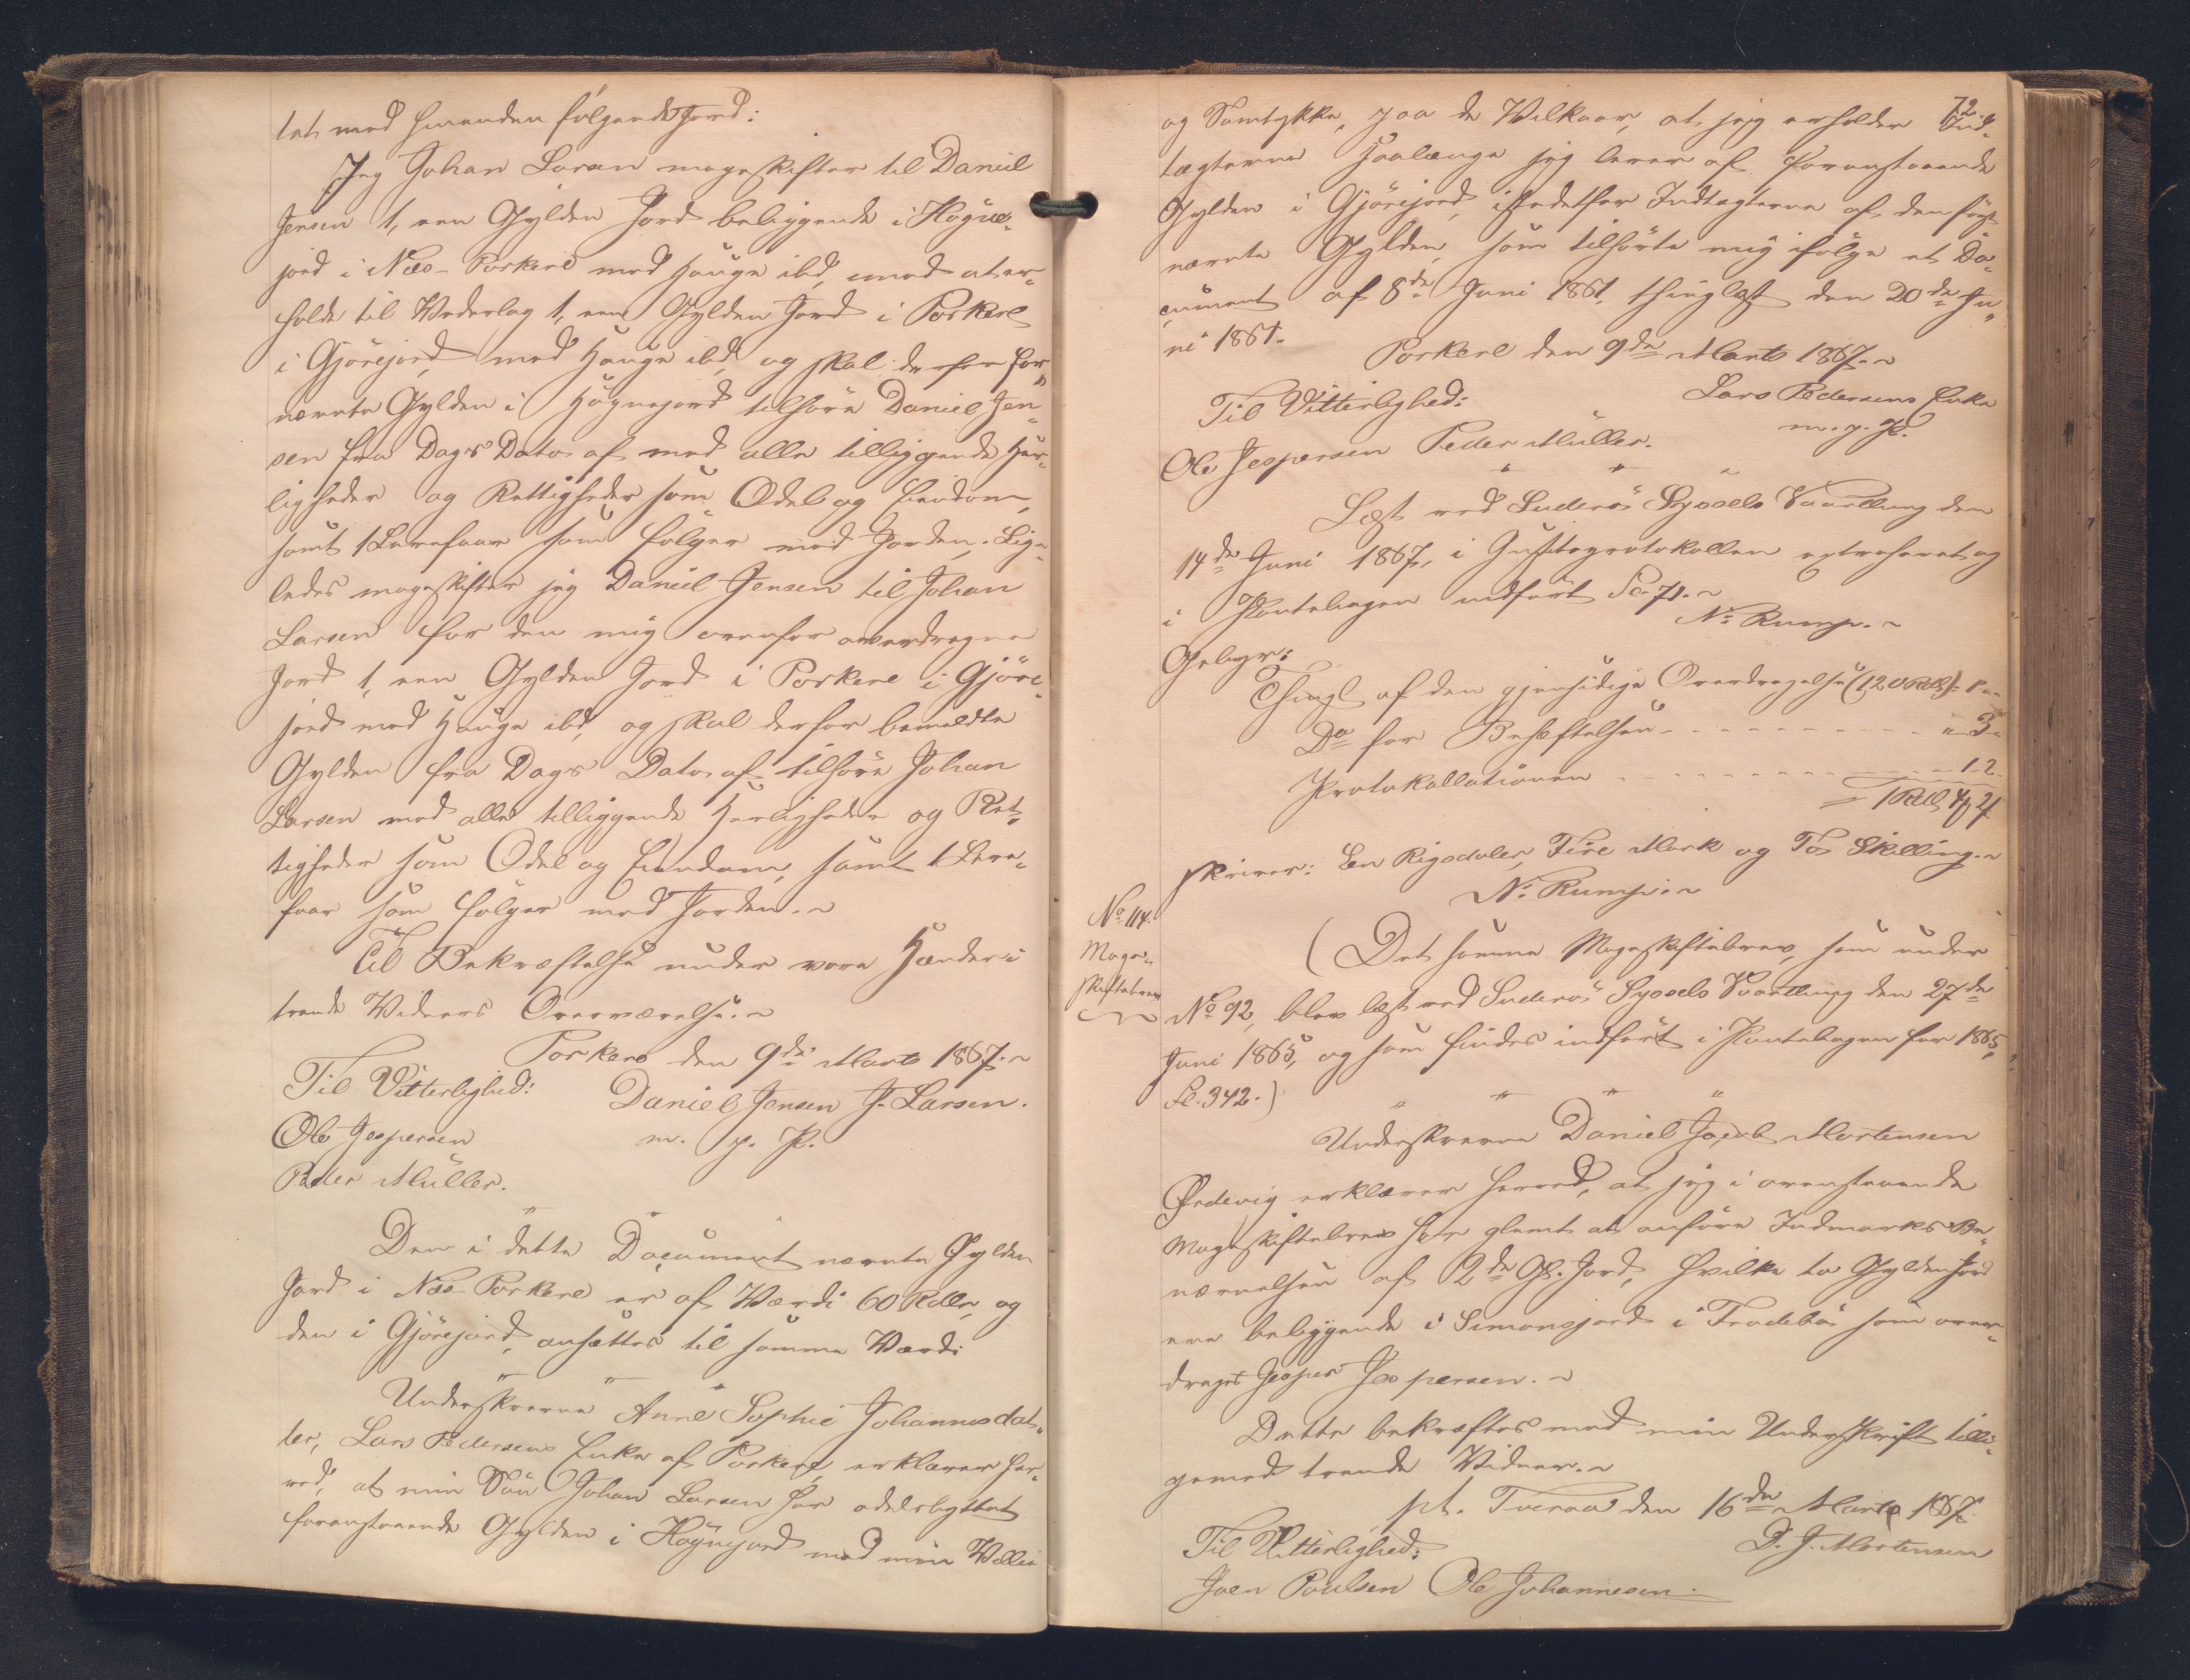 tet med hinanden følgende Jord:
Jeg Johan Larsen mageskifter til Daniel
Jensen 1, een Gylden Jord beliggende i Høgne-
jord i Næs-Porkere med Hauge ibd, imod at er-
holde til Vederlag 1, een Gylden Jord i Porkere
i Gjørejord, med Hauge ibd, og skal derfor for-
nævnte Gylden i Høgnejord tilhøre Daniel Jen-
sen fra Dags Dato af med alle tilliggende Her-
ligheder og Rettigheder som Odel og Eiendom,
samt 1 Ларefaar som følger med Jorden. Lige-
ledes mageskifter jeg Daniel Jensen til Johan
Larsen for den mig ovenfor overdragne
Jord 1, een Gylden Jord i Porkere i Gjøre-
jord med Hauge ibd, og skal derfor bemeldte
Gylden fra Dags Dato af tilhøre Johan
Larsen med alle tilliggende Herligheder og Ret-
tigheder som Odel og Eiendom, samt 1
faar som følger med Jorden.
Til Bekræftelse under vore Hænder i
tvende Vidners Overværelse.
Porkere den 9de Marts 1867.
Til Vitterlighed: Daniel Jensen J. Larsen.
Ole Jespersen m. p. P.
Peder Müller.
Den i dette Document nævnte Gylden
Jord i Næs-Porkere er af Værdi 60 Rdlr, og
den i Gjørejord, ansættes til samme Værdi
Underskrevne Anne Sophie Johannesdat-
ter, Lars Pedersens Enke af Porkere, erklærer her-
ved, at min Søn Johan Larsen har odelsbyttet
foranstaaende Gylden i Høgnejord med min Villie
72.
og Samtykke, paa de Vilkaar, at jeg erholder Ind-
tægterne saalænge jeg lever af foranstaaende
Gylden i Gjørejord, istedetfor Indtægterne af den først-
nævnte Gylden, som tilhørte mig ifølge et Do-
cument af 8de Juni 1861, thinglæst den 20de Ju-
ni 1861.
Porkere den 9de Marts 1867.
Til Vitterlighed: Lars Pedersens Enke
Ole Jespersen Peder Müller. m. p. P.
Læst ved Suderø Syssels Vaarthing den
14de Juni 1867, i Justitsprotokollen extraheret og
i Pantebogen indført Fo. 71.
N. Rump.
Gebyr:
Thingl. af den gjensidige Overdragelse (120 Rdl) 1 " "
Do for Behæftelsen " 3 "
Protokollationen " 1 2
= 1 Rdl 4 ꝟ 2 ß
skriver: Een Rigsdaler, Fire Mark og To Skilling.
N. Rump.
No 114.
Mage-
skiftebrev
(Det samme Mageskiftebrev, som under
No 92, blev læst ved Suderø Syssels Vaarthing den 27de
Juni 1865, og som findes indført i Pantebogen for 1865,
Fo. 342.)
Underskrevne Daniel Jacob Mortensen
Ørdevig erklærer herved, at jeg i ovenstaaende
Mageskiftebrev har glemt at anføre Indmarks Be-
nævnelsen af 2de Gl. Jord, hvilke to Gylden Jord
ere beliggende i Simonsjord i Frodebø som over-
drages Jesper Jespersen.
Dette bekræftes med min Underskrift tilli-
gemed tvende Vidner.
pt. Tveraa den 16de Marts 1867.
Til Vitterlighed: D. J. Mortensen
Joen Poulsen Ole Johannesen.